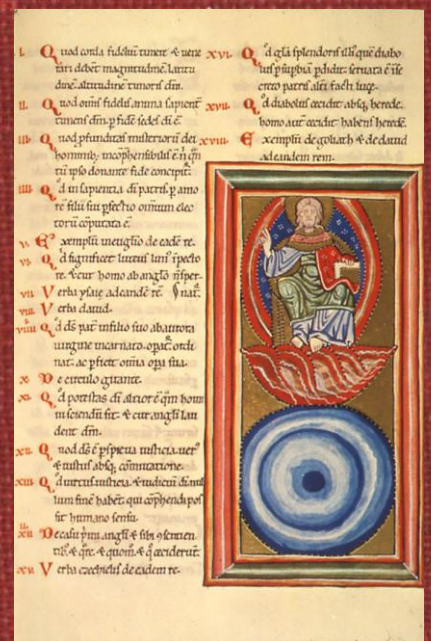 i. Quod corda fidelium timere & vene
rari debent magnitudinē latitu
dinē altitudinē timoris dni.
ii. Quod omīs fidelis anima sapient
timens dm̄ p fidē sedes di ē
iii. Quod pfunditas misteriorū dei
hominib; incōphensibilis ē n̄ qn̄
tū ipso donante fide concipit.
iiii. Qd in sapientia di patris p amo
rē filii sui pfectio omnium elec
torū cōputata ē.
v. Exemplū in euglio de eadē re.
vi. Qd significet luteus lim
re. & cur homo ab anglo n̄ sper
vii. Verba ysaie ad eandē rē. nat.
viii. Verba dauid.
viiii. Qd ds pat in filio suo
uirgine incarnato opat ordi
nat ac pficit omīa opa sua.
x. De circulo girante.
xi. Qd potestas di altior ē qm homi
ni sciendū sit. & cur angli lau
dent dm̄.
xii. Quod ds ē pspicua iusticia uer
& iustus absq; cōmutatione.
xiii. Qd uirtus iusticia & iudiciū di nul
lum finē habet qui cōphendi pos
sit humano sensu.
xiiii. De casu pimi angli & sibi
& qre & quom̄ & q ceciderūt.
xv. Verba ezechielis de eadem re.
xvi. Qd glā splendoris illi quē diabo
lus p supbiā pdidit. seruata ē ī se
creto patris alti factē luci.
xvii. Qd diabolus cecidit absq; herede.
homo aut cecidit habens herede.
xviii. Exemplū de goliath & de dauid
ad eandem rem.